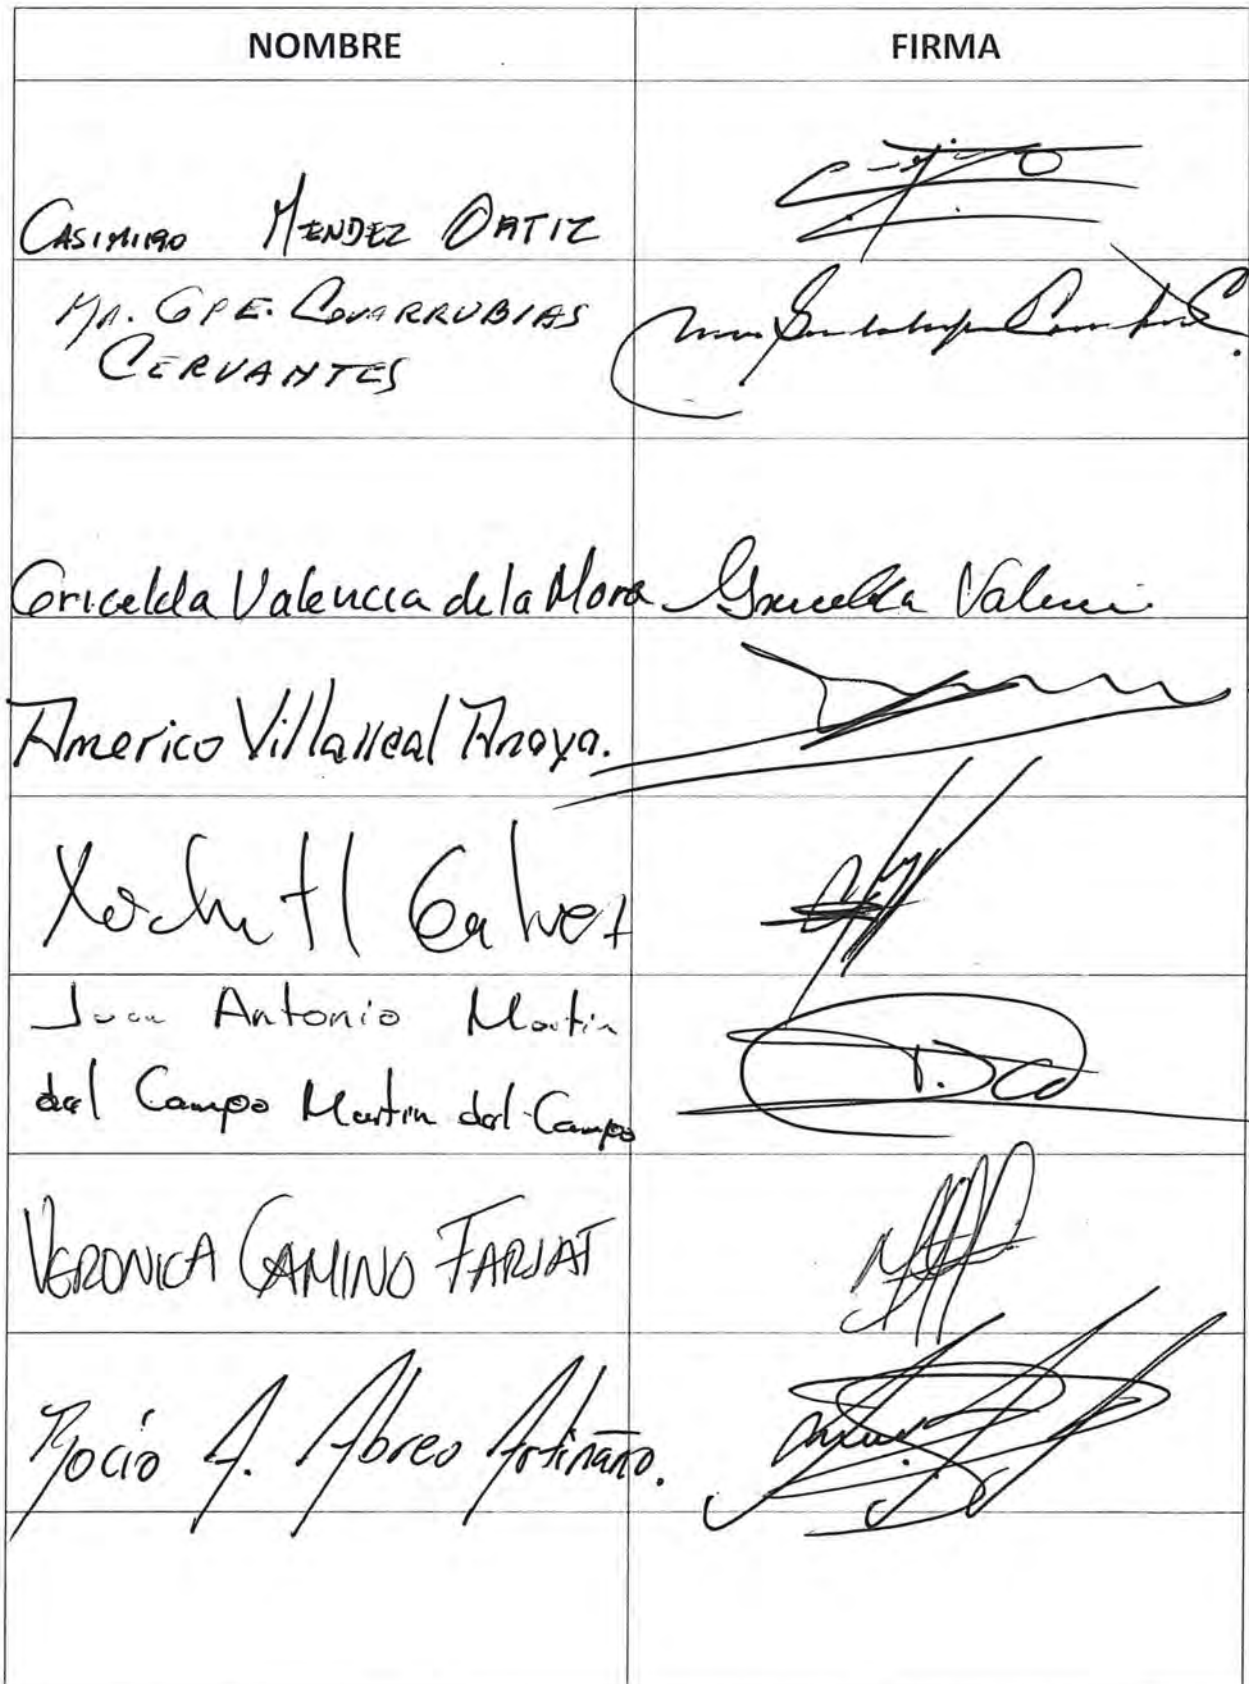 NOMBRE FIRMA
CASIMIRO MENDEZ ORTIZ
MA. GPE. COVARRUBIAS
CERVANTES
Gricelda Valencia de la Mora Gricelda Valenci
Americo Villarreal Anaya.
Xochitl Galvez
Juan Antonio Martin
del Campo Martin del Campo
VERONICA CAMINO FARJAT
Rocío A. Abreo Artiñano.